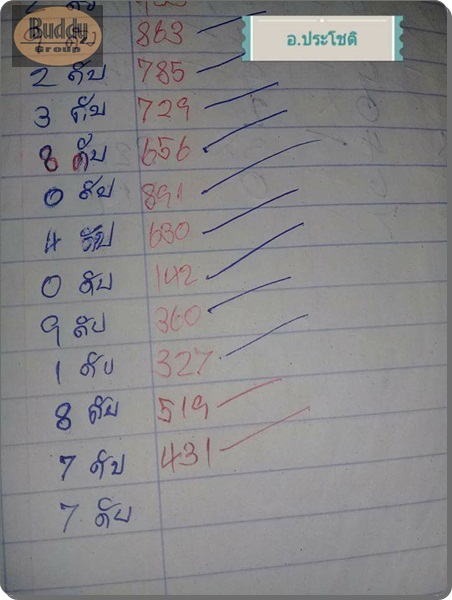 Buddy
Group
อ.ประโชติ
ดับ 863
2 ดับ 785
3 ดับ 729
8 ดับ 656
0 ดับ 891
4 ดับ 630
0 ดับ 142
9 ดับ 360
1 ดับ 327
8 ดับ 519
7 ดับ 431
7 ดับ